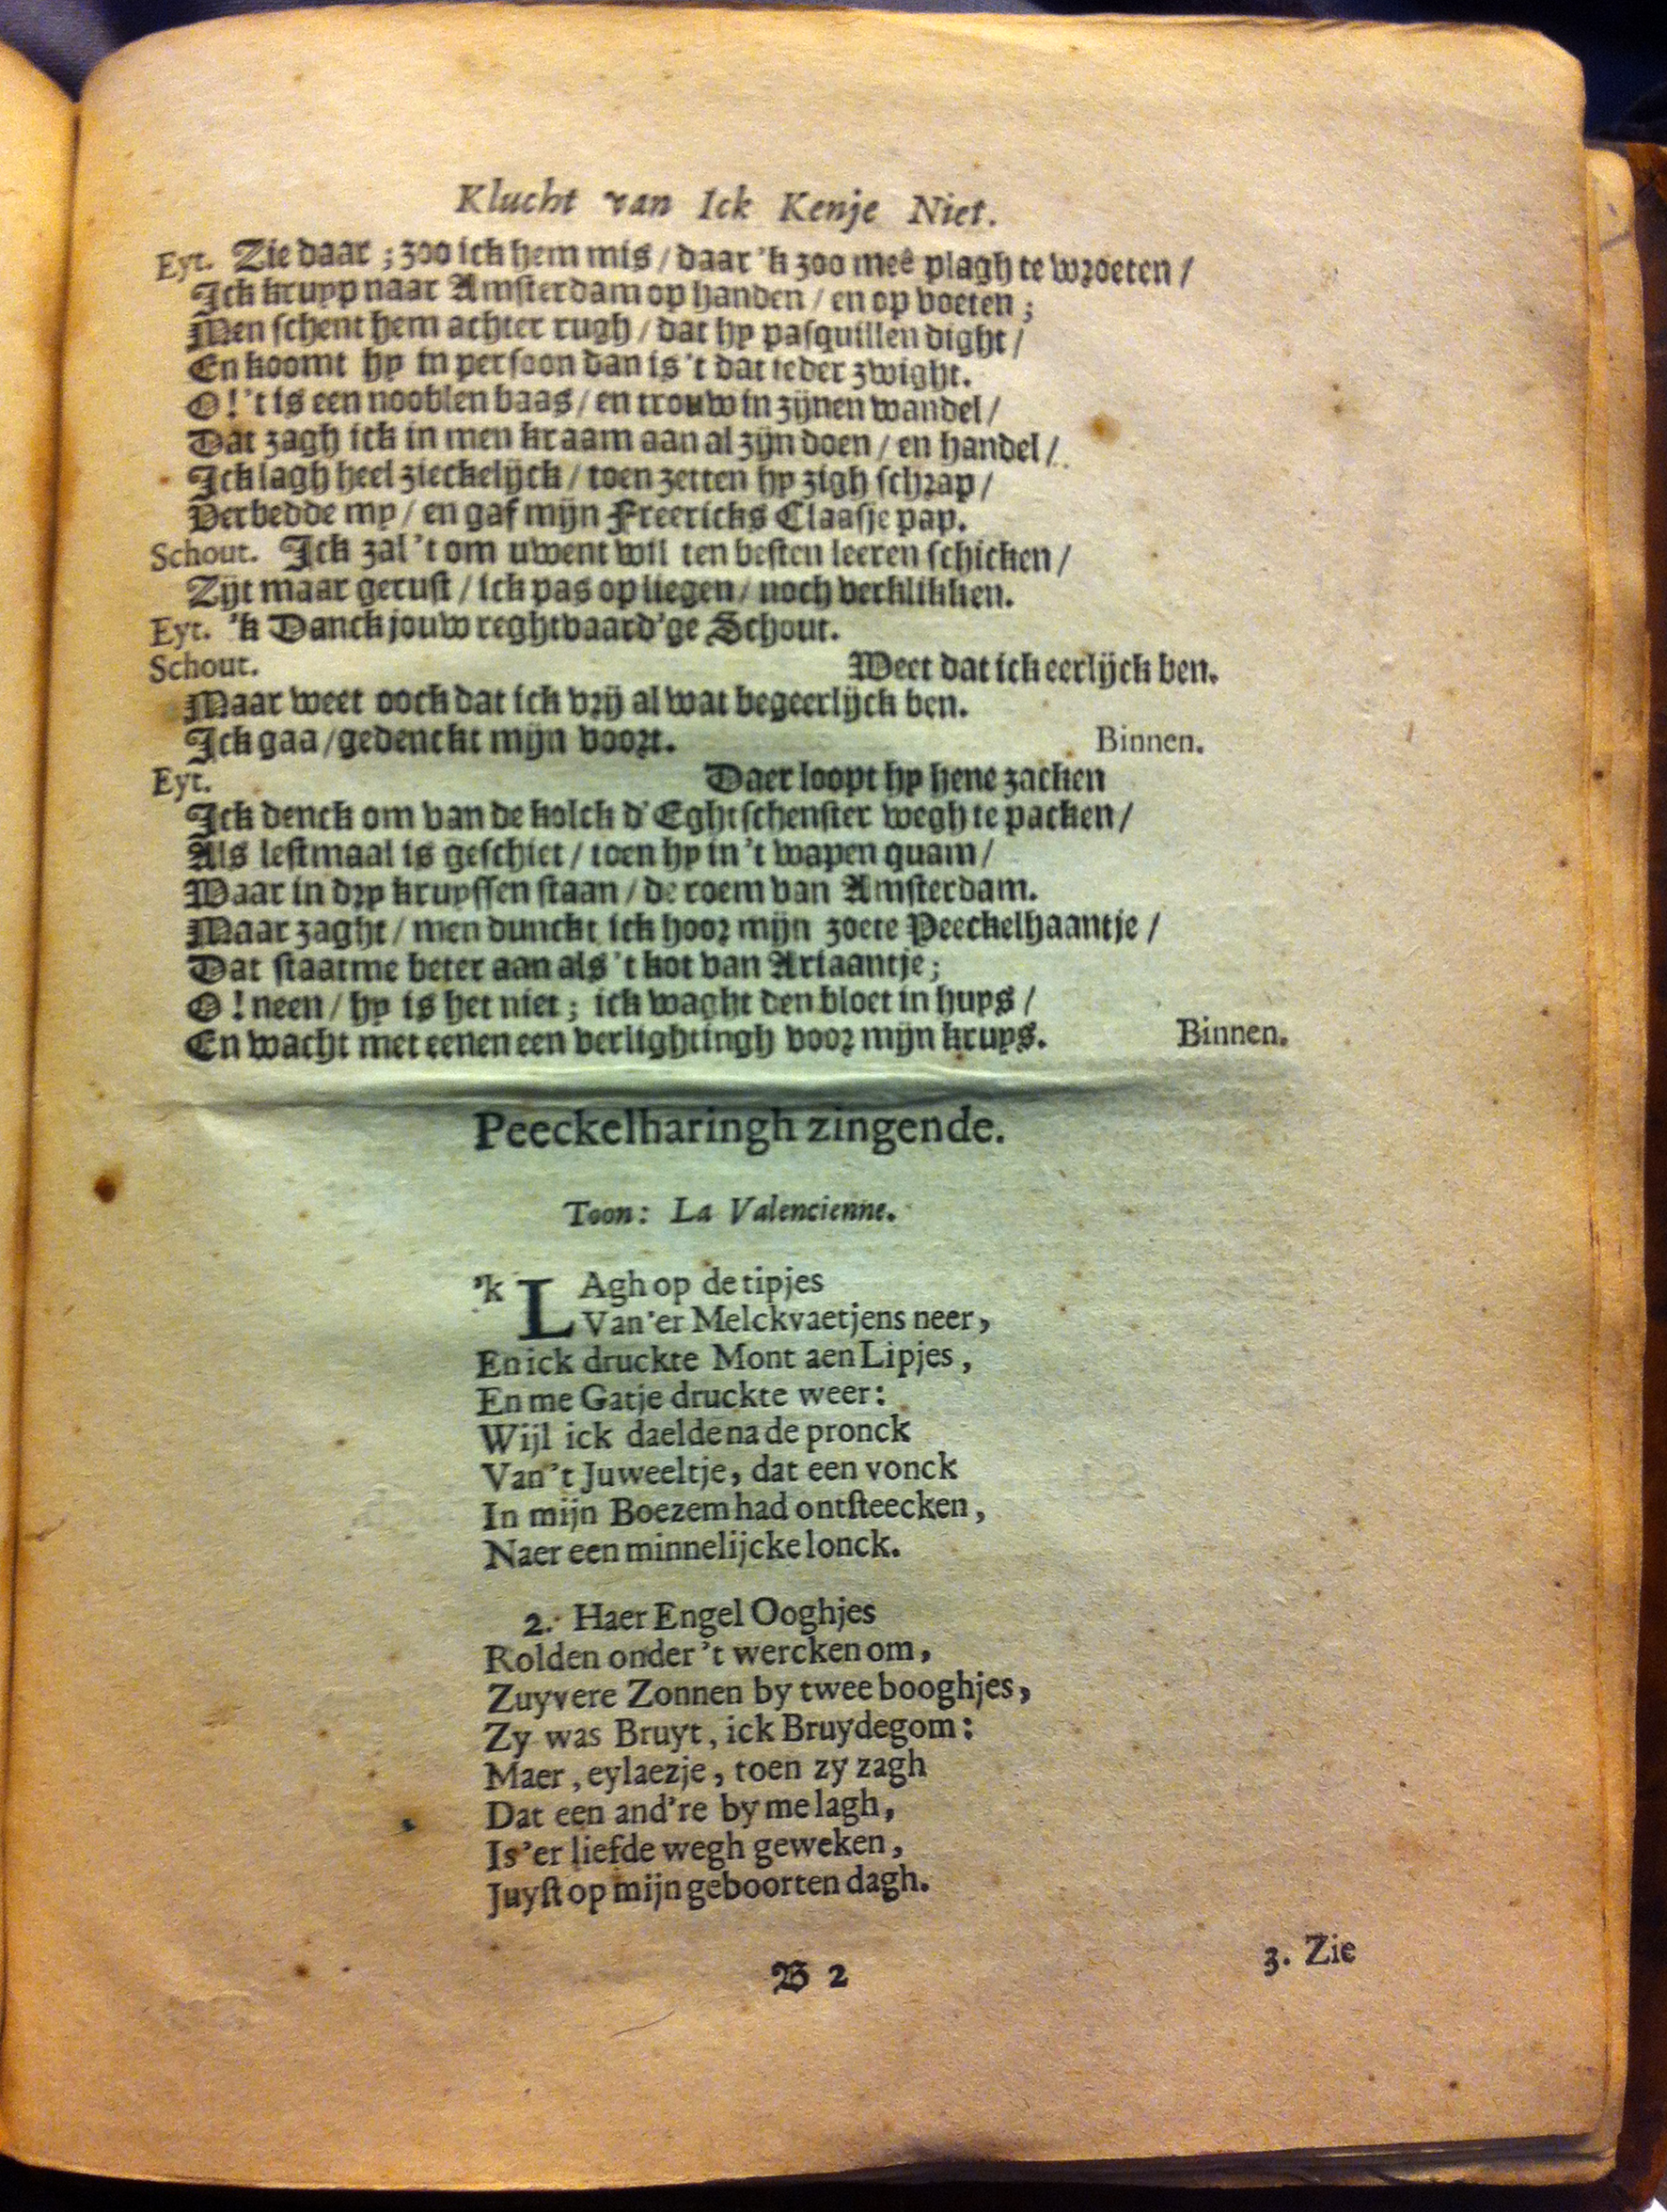 Klucht van Ick Kenje Niet.
Eyt. Zie daar ; zoo ick hem mis / daar 'k zoo meê plagh te wroeten /
Ick kruyp naar Amsterdam op handen / en op voeten ;
Men schent hem achter rugh / dat hy pasquillen dight /
En koomt hy in persoon dan is 't dat ieder zwight.
O ! 't is een nooblen baas / en trouw in zijnen wandel /
Dat zagh ick in men kraam aan al zijn doen / en handel /
Ick lagh heel zieckelijck / toen zetten hy zigh schrap /
Verbedde my / en gaf mijn Freericks Claasje pap.
Schout. Ick zal 't om uwent wil ten besten leeren schicken /
Zijt maar gerust / ick pas op liegen / noch verklikken.
Eyt. 'k Danck jouw reghtvaard'ge Schout.
Schout. Weet dat ick eerlijck ben.
Maar weet oock dat ick vry al wat begeerlijck ben.
Ick gaa / gedenckt mijn voort. Binnen.
Eyt. Daer loopt hy hene zacken
Ick denck om van de kolck d'Eghtschenster wegh te packen /
Als lestmaal is geschiet / toen hy in 't wapen quam /
Waar in dry kruyssen staan / de roem van Amsterdam.
Maar zaght / men dunckt ick hoor mijn zoete Peeckelhaantje /
Dat staat me beter aan als 't kot van Ariaantje ;
O ! neen / hy is het niet ; ick waght den bloet in huys /
En wacht met eenen een verlightingh voor mijn kruys. Binnen.
Peeckelharingh zingende.
Toon: La Valencienne.
'k LAgh op de tipjes
Van 'er Melckvaetjens neer,
En ick druckte Mont aen Lipjes,
En me Gatje druckte weer:
Wijl ick daelde na de pronck
Van 't Juweeltje, dat een vonck
In mijn Boezem had ontsteecken,
Naer een minnelijcke lonck.
2. Haer Engel Ooghjes
Rolden onder 't wercken om,
Zuyvere Zonnen by twee booghjes,
Zy was Bruyt, ick Bruydegom:
Maer, eylaezje, toen zy zagh
Dat een and're by me lagh,
Is 'er liefde wegh geweken,
Juyst op mijn geboorten dagh.
B 2
3. Zie